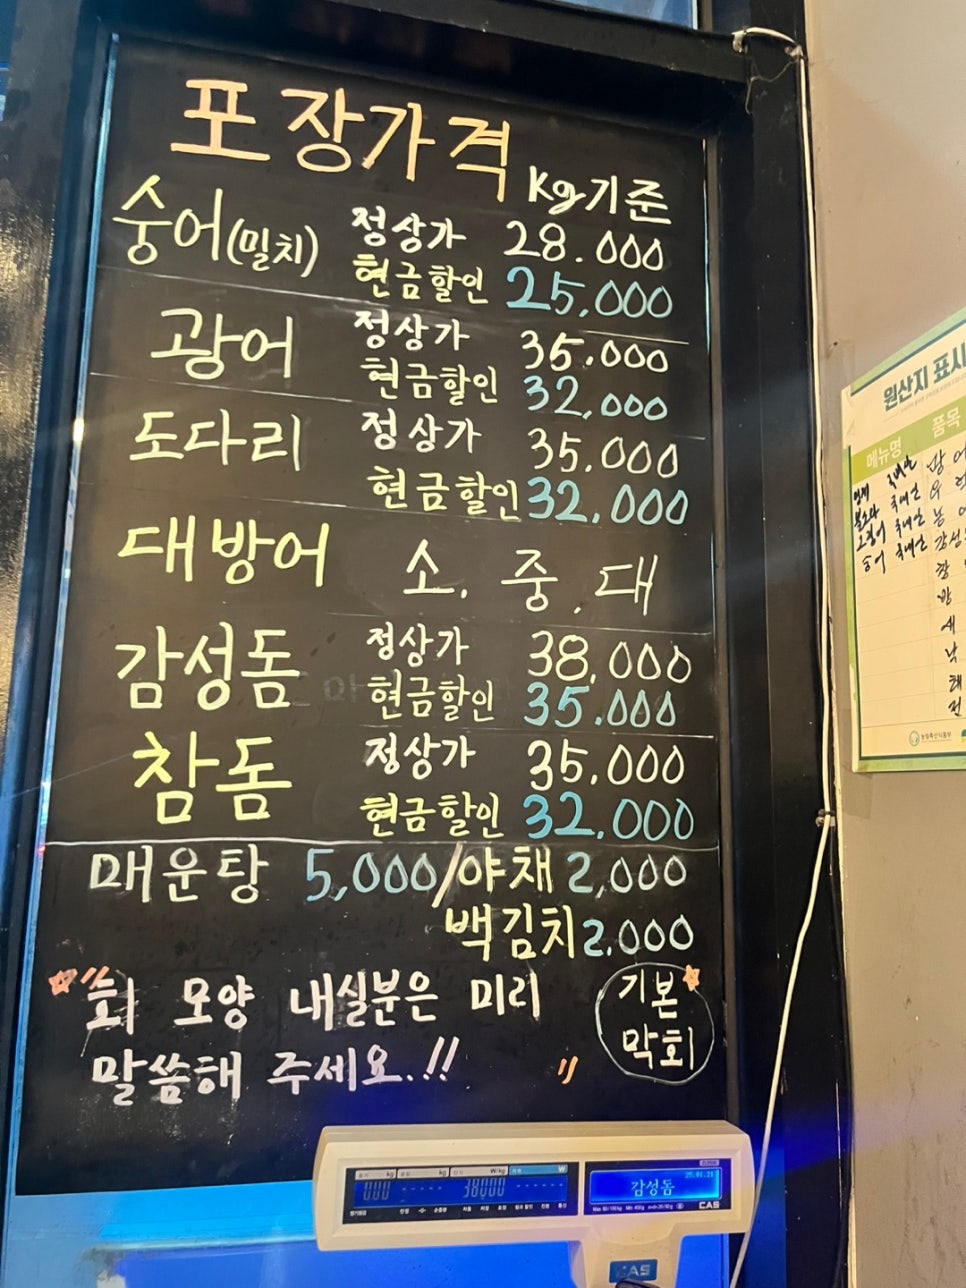 포장가격
Kg기준
숭어(밀치) 정상가 28.000
현금할인 25,000
광어 정상가 35.000
현금할인 32,000
도다리 정상가 35.000
현금할인 32,000
대방어 소. 중. 대
감성돔 정상가 38,000
현금할인 35.000
참돔 정상가 35.000
현금할인 32,000
매운탕 5,000/야채 2,000
백김치 2.000
"회 모양 내실분은 미리
말씀해 주세요.!! "
기본
막회
원산지 표시
메뉴명 품목
국내산
국내산
국내산
숭어 국내산
0.00 38000
감성돔
25.01.21
CAS
CAS